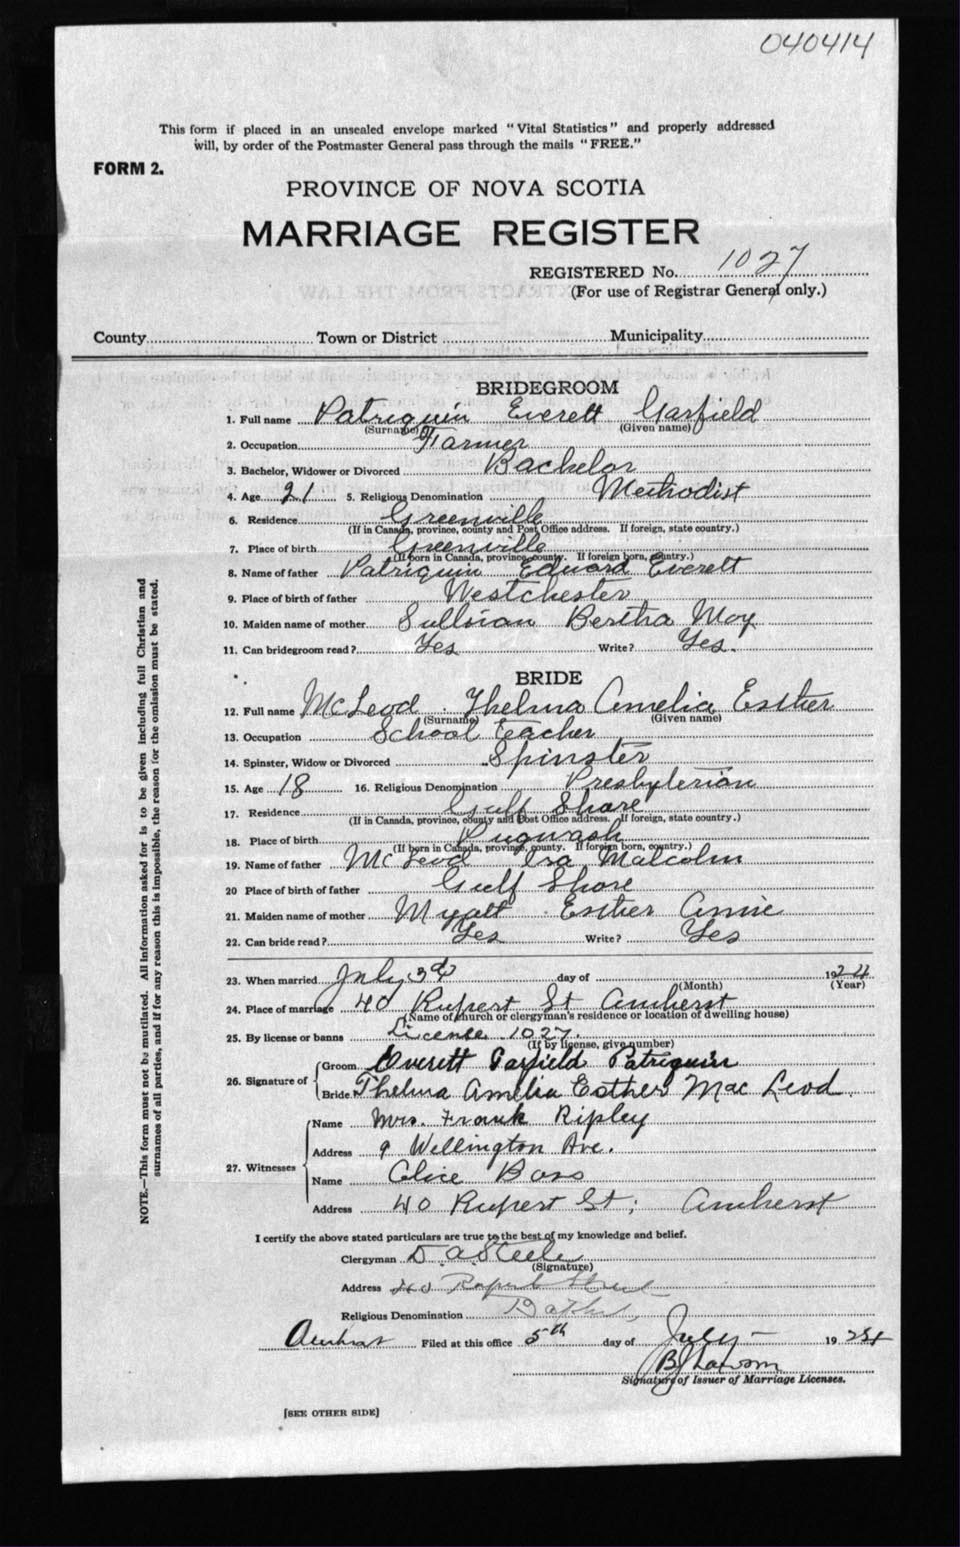 040414
This form if placed in an unsealed envelope marked "Vital Statistics" and properly addressed
will, by order of the Postmaster General pass through the mails "FREE."
FORM 2.
PROVINCE OF NOVA SCOTIA
MARRIAGE REGISTER
REGISTERED No. 1027
(For use of Registrar General only.)
County Town or District Municipality
BRIDEGROOM
1. Full name Patriquin Everett Garfield
(Surname) (Given name)
2. Occupation Farmer
3. Bachelor, Widower or Divorced Bachelor
4. Age 21 5. Religious Denomination Methodist
6. Residence Greenville
(If in Canada, province, county and Post Office address. If foreign, state country.)
7. Place of birth Greenville
(If born in Canada, province, county. If foreign born, country.)
8. Name of father Patriquin Edward Everett
9. Place of birth of father Westchester
10. Maiden name of mother Sullivan Bertha May
11. Can bridegroom read? Yes Write? Yes.
BRIDE
12. Full name McLeod Thelma Amelia Esther
(Surname) (Given name)
13. Occupation School Teacher
14. Spinster, Widow or Divorced Spinster
15. Age 18 16. Religious Denomination Presbyterian
17. Residence Gulf Shore
(If in Canada, province, county and Post Office address. If foreign, state country.)
18. Place of birth Pugwash
(If born in Canada, province, county. If foreign born, country.)
19. Name of father McLeod Ira Malcolm
20 Place of birth of father Gulf Shore
21. Maiden name of mother Myatt Esther Annie
22. Can bride read? Yes Write? Yes
23. When married July 3rd day of 1924
(Month) (Year)
24. Place of marriage 40 Rupert St Amherst
(Name of church or clergyman's residence or location of dwelling house)
25. By license or banns License 1027.
(If by license, give number)
26. Signature of
Groom Everett Garfield Patriquin
Bride Thelma Amelia Esther Mac Leod.
27. Witnesses
Name Mrs. Frank Ripley
Address 9 Wellington Ave.
Name Alice Boss
Address 40 Rupert St; Amherst
I certify the above stated particulars are true to the best of my knowledge and belief.
Clergyman D. A. Steele
(Signature)
Address 40 Rupert Street
Religious Denomination Baptist
Amherst Filed at this office 5th day of July 1924
Signature of Issuer of Marriage Licenses.
[SEE OTHER SIDE]
NOTE.—This form must not be mutilated. All information asked for is to be given including full Christian and
surnames of all parties, and if for any reason this is impossible, the reason for the omission must be stated.